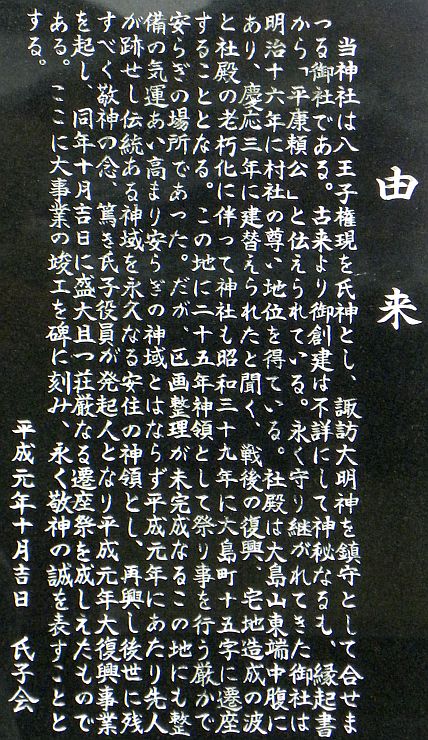 由来
当神社は八王子権現を氏神とし、諏訪大明神を鎮守として合せま
つる御社である。古来より御創建は不詳にして神秘なるも、縁起書
から「平康頼公」と伝えられている。永く守り継がれてきた御社は
明治十六年に村社の尊い地位を得ている。社殿は大島山東端中腹に
あり、慶応三年に建替えられたと聞く、戦後の復興、宅地造成の波
と社殿の老朽化に伴って神社も昭和三十九年に大島町十五字に遷座
することとなる。この地に二十五年神領として祭り事を行う厳かで
安らぎの場所であった。だが、区画整理が未完成なるこの地にも整
備の気運あい高まり安らぎの神域とはならず平成元年にあたり先人
が跡せし伝統ある神域を永久なる安住の神領とし、再興し後世に残
すべく敬神の念、篤き氏子役員が発起人となり平成元年大復興事業
を起し、同年十月吉日に盛大且つ荘厳なる遷座祭を成しえたもので
ある。ここに大事業の竣工を碑に刻み、永く敬神の誠を表すことと
する。
平成元年十月吉日 氏子会